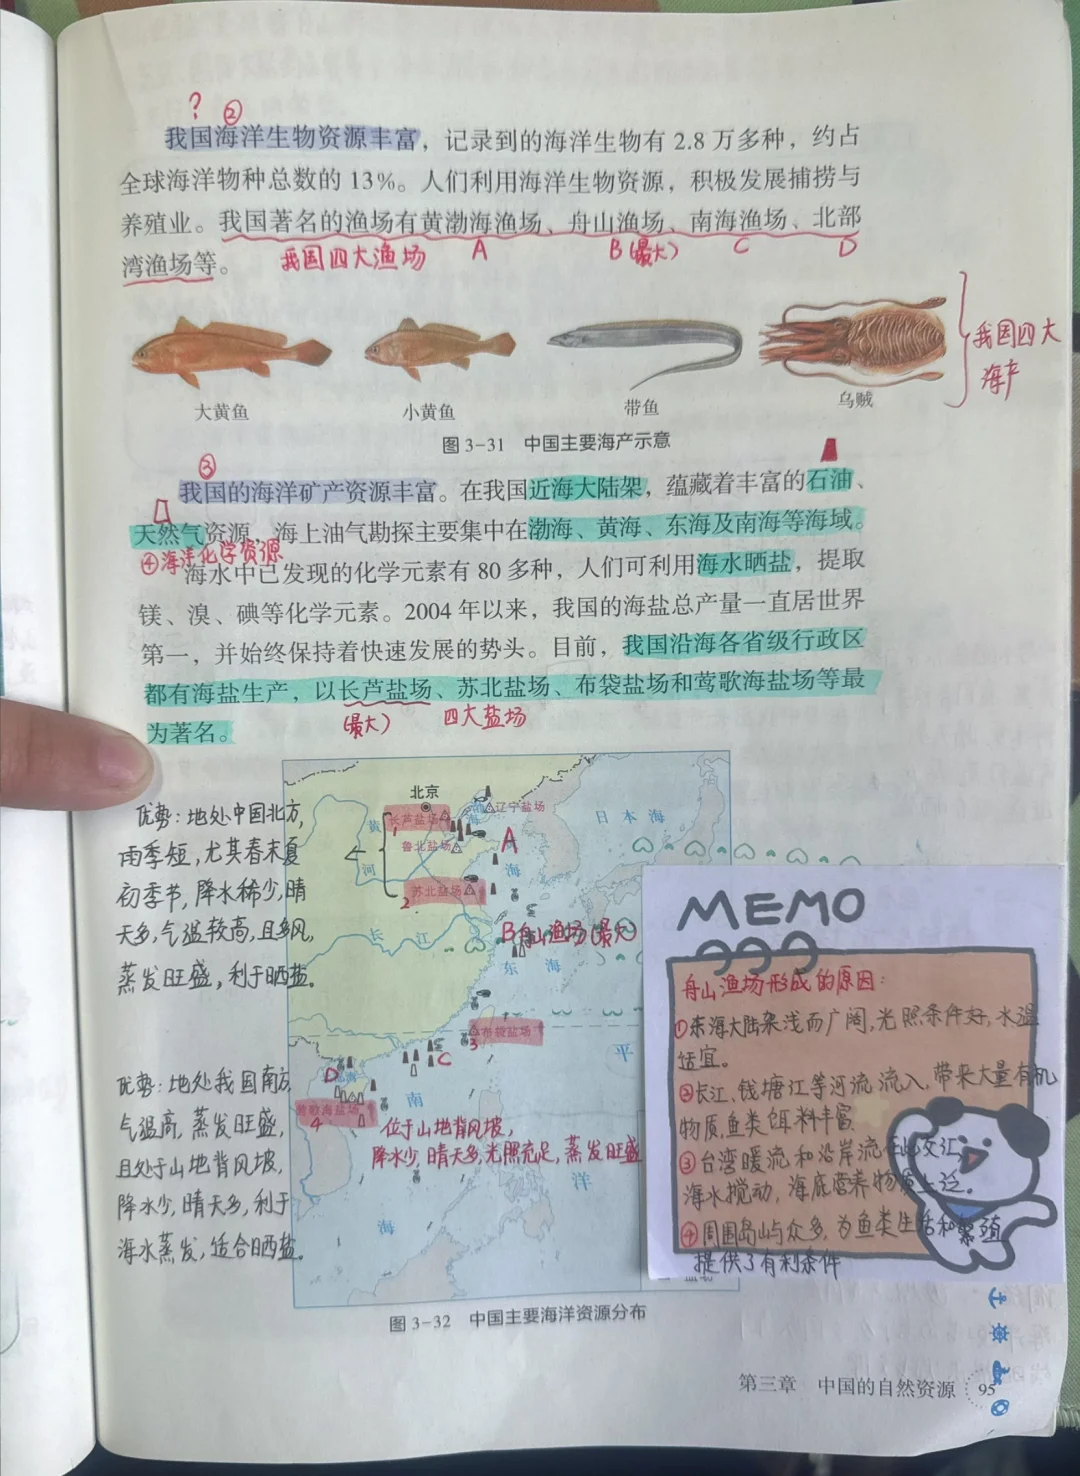 ? ②
我国海洋生物资源丰富，记录到的海洋生物有 2.8 万多种，约占
全球海洋物种总数的 13%。人们利用海洋生物资源，积极发展捕捞与
养殖业。我国著名的渔场有黄渤海渔场、舟山渔场、南海渔场、北部
湾渔场等。
我国四大渔场 A B(最大) C D
我国四大
海产
大黄鱼 小黄鱼 带鱼 乌贼
图 3-31 中国主要海产示意
③
我国的海洋矿产资源丰富。在我国近海大陆架，蕴藏着丰富的石油、
天然气资源，海上油气勘探主要集中在渤海、黄海、东海及南海等海域。
④海洋化学资源
海水中已发现的化学元素有 80 多种，人们可利用海水晒盐，提取
镁、溴、碘等化学元素。2004 年以来，我国的海盐总产量一直居世界
第一，并始终保持着快速发展的势头。目前，我国沿海各省级行政区
都有海盐生产，以长芦盐场、苏北盐场、布袋盐场和莺歌海盐场等最
为著名。
(最大) 四大盐场
优势：地处中国北方，
雨季短，尤其春末夏
初季节，降水稀少，晴
天多，气温较高，且多风，
蒸发旺盛，利于晒盐。
优势：地处我国南方，
气温高，蒸发旺盛，
且处于山地背风坡，
降水少，晴天多，利于
海水蒸发，适合晒盐。
北京
辽宁盐场
长芦盐场
1
鲁北盐场
苏北盐场
2
黄
河
长 江
渤
海
黄
海
日 本 海
A
B舟山渔场(最大)
东 海
布袋盐场
3
C
D
莺歌海盐场
4
南
海
平
洋
位于山地背风坡，
降水少，晴天多，光照充足，蒸发旺盛
MEMO
舟山渔场形成的原因：
①东海大陆架浅而广阔，光照条件好，水温
适宜。
②长江、钱塘江等河流流入，带来大量有机
物质，鱼类饵料丰富
③台湾暖流和沿岸流在此交汇，
海水搅动，海底营养物质上泛。
④周围岛屿众多，为鱼类生活和繁殖
提供了有利条件
图 3-32 中国主要海洋资源分布
第三章 中国的自然资源 95